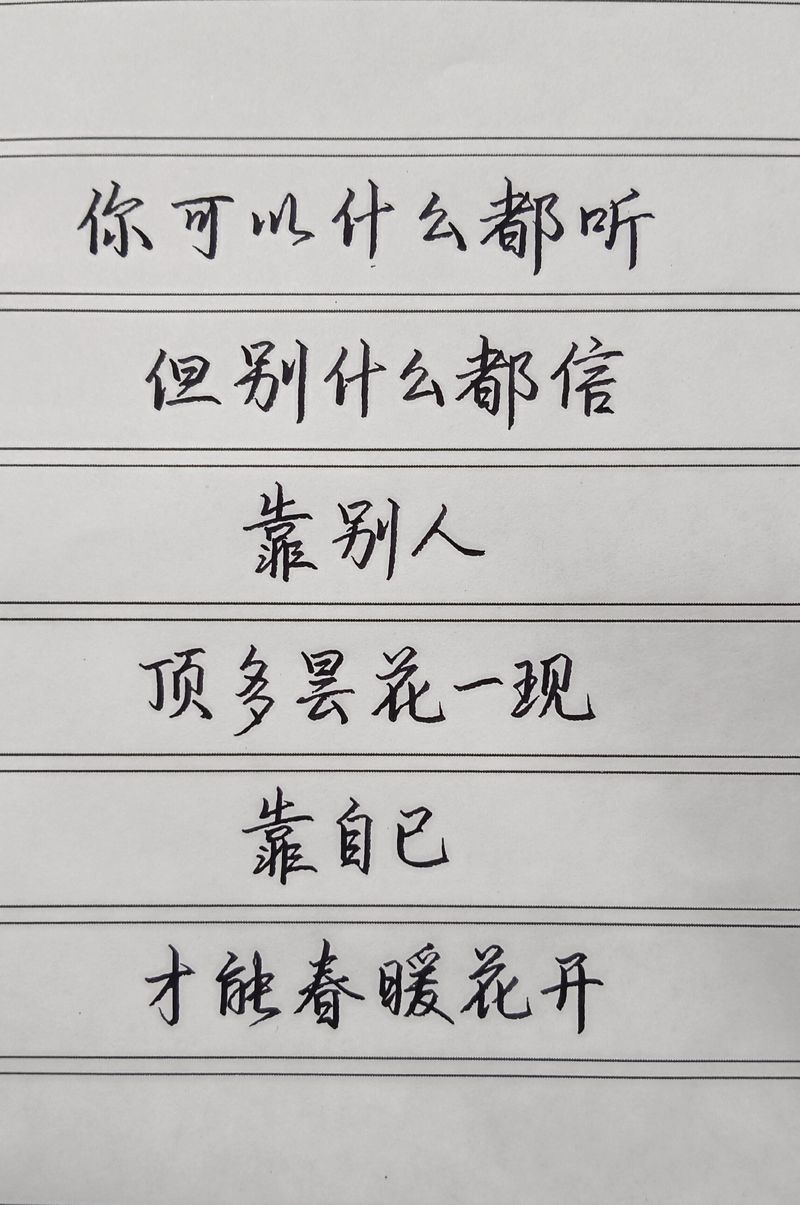 你可以什么都听
但别什么都信
靠别人
顶多昙花一现
靠自己
才能春暖花开